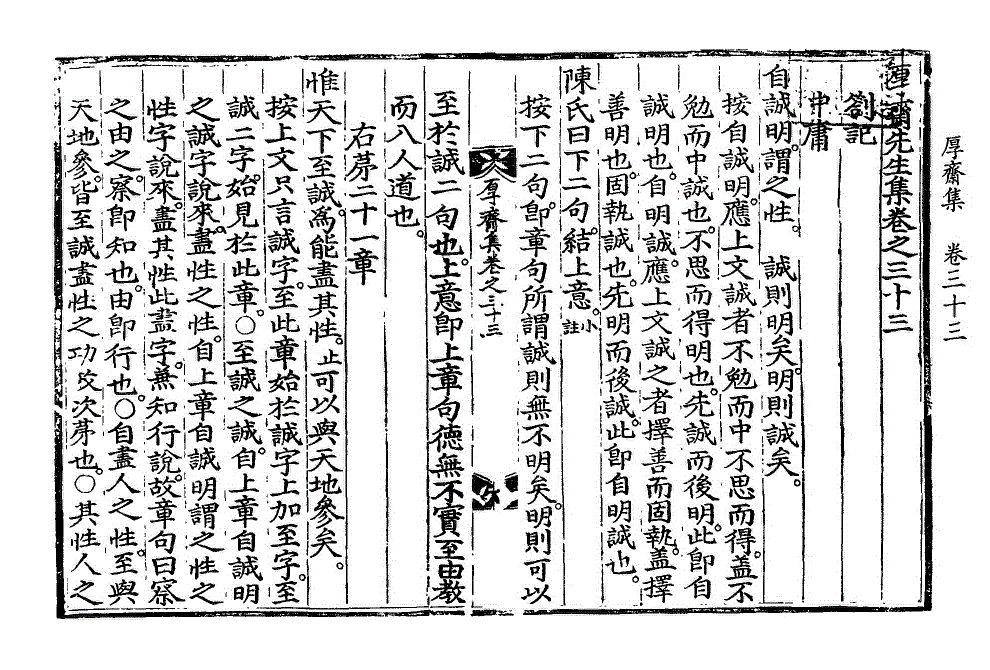 厚齋集　卷三十三
厚齋先生集卷之三十三
劄記
中庸
自誠明。謂之性　誠則明矣。明則誠矣。
按自誠明。應上文誠者不勉而中不思而得。盖不
勉而中誠也。不思而得明也。先誠而後明。此卽自
誠明也。自明誠。應上文誠之者擇善而固執。盖擇
善明也。固執誠也。先明而後誠。此卽自明誠也。
陳氏曰下二句。結上意。小註
按下二句。卽章句所謂誠則無不明矣。明則可以
厚齋集卷之三十三
至於誠二句也。上意卽上章句德無不實至由教
而入人道也。
右苐二十一章
惟天下至誠。爲能盡其性。止可以與天地參矣。
按上文只言誠字。至此章始於誠字上加至字。至
誠二字。始見於此章。○至誠之誠。自上章自誠明
之誠字說來。盡性之性。自上章自誠明謂之性之
性字說來。盡其性此盡字。兼知行說。故章句曰察
之由之。察卽知也。由卽行也。○自盡人之性。至與
天地參。皆至誠盡性之功效次苐也。○其性人之